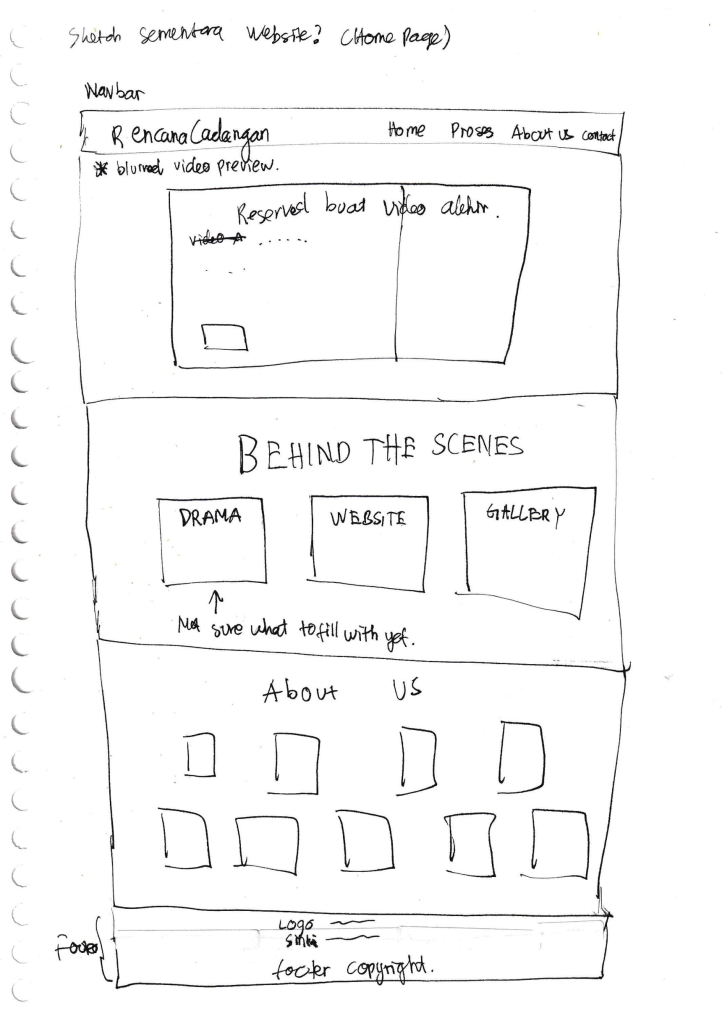 Sketch sementara Website? (Home Page)
Navbar
RencanaCadangan Home Proses About us contact
* blurred video preview.
Reserved buat video akhir.
video A ......
Behind the scenes
DRAMA WEBSITE GALLERY
Not sure what to fill with yet.
About US
LOGO
Footer
footer copyright.